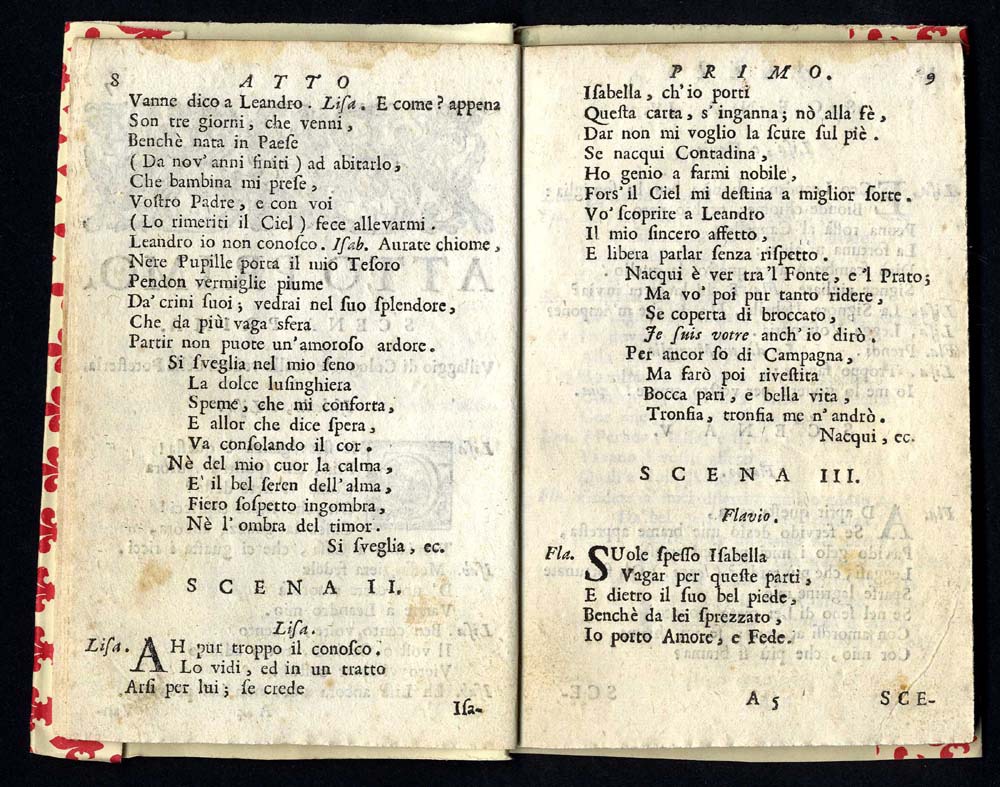 8 ATTO
Vanne dico a Leandro. Liſa. E come? appena
Son tre giorni, che venni,
Benchè nata in Paeſe
(Da nov' anni finiti) ad abitarlo,
Che bambina mi preſe,
Voſtro Padre, e con voi
(Lo rimeriti il Ciel) fece allevarmi.
Leandro io non conoſco. Iſab. Aurate chiome,
Nere Pupille porta il mio Teſoro
Pendon vermiglie piume
Da' crini ſuoi; vedrai nel ſuo ſplendore,
Che da più vaga sfera
Partir non puote un' amoroſo ardore.
Si ſveglia nel mio ſeno
La dolce luſinghiera
Speme, che mi conforta,
E allor che dice ſpera,
Va conſolando il cor.
Nè del mio cuor la calma,
E' il bel ſeren dell' alma,
Fiero ſoſpetto ingombra,
Nè l' ombra del timor.
Si ſveglia, ec.
SCENA II.
Liſa.
Liſa. AH pur troppo il conoſco.
Lo vidi, ed in un tratto
Arſi per lui; ſe crede
Iſa-
PRIMO. 9
Iſabella, ch' io porti
Queſta carta, s' inganna; nò alla fè,
Dar non mi voglio la ſcure ſul piè.
Se nacqui Contadina,
Ho genio a farmi nobile,
Forſ' il Ciel mi deſtina a miglior ſorte.
Vo' ſcoprire a Leandro
Il mio ſincero affetto,
E libera parlar ſenza riſpetto.
Nacqui è ver tra'l Fonte, e 'l Prato;
Ma vo' poi pur tanto ridere,
Se coperta di broccato,
Je ſuis votre anch' io dirò.
Per ancor ſo di Campagna,
Ma farò poi riveſtita
Bocca pari, e bella vita,
Tronfia, tronfia me n' andrò.
Nacqui, ec.
SCENA III.
Flavio.
Fla. SUole ſpeſſo Iſabella
Vagar per queſte parti,
E dietro il ſuo bel piede,
Benchè da lei ſprezzato,
Io porto Amore, e Fede.
A 5 SCE-